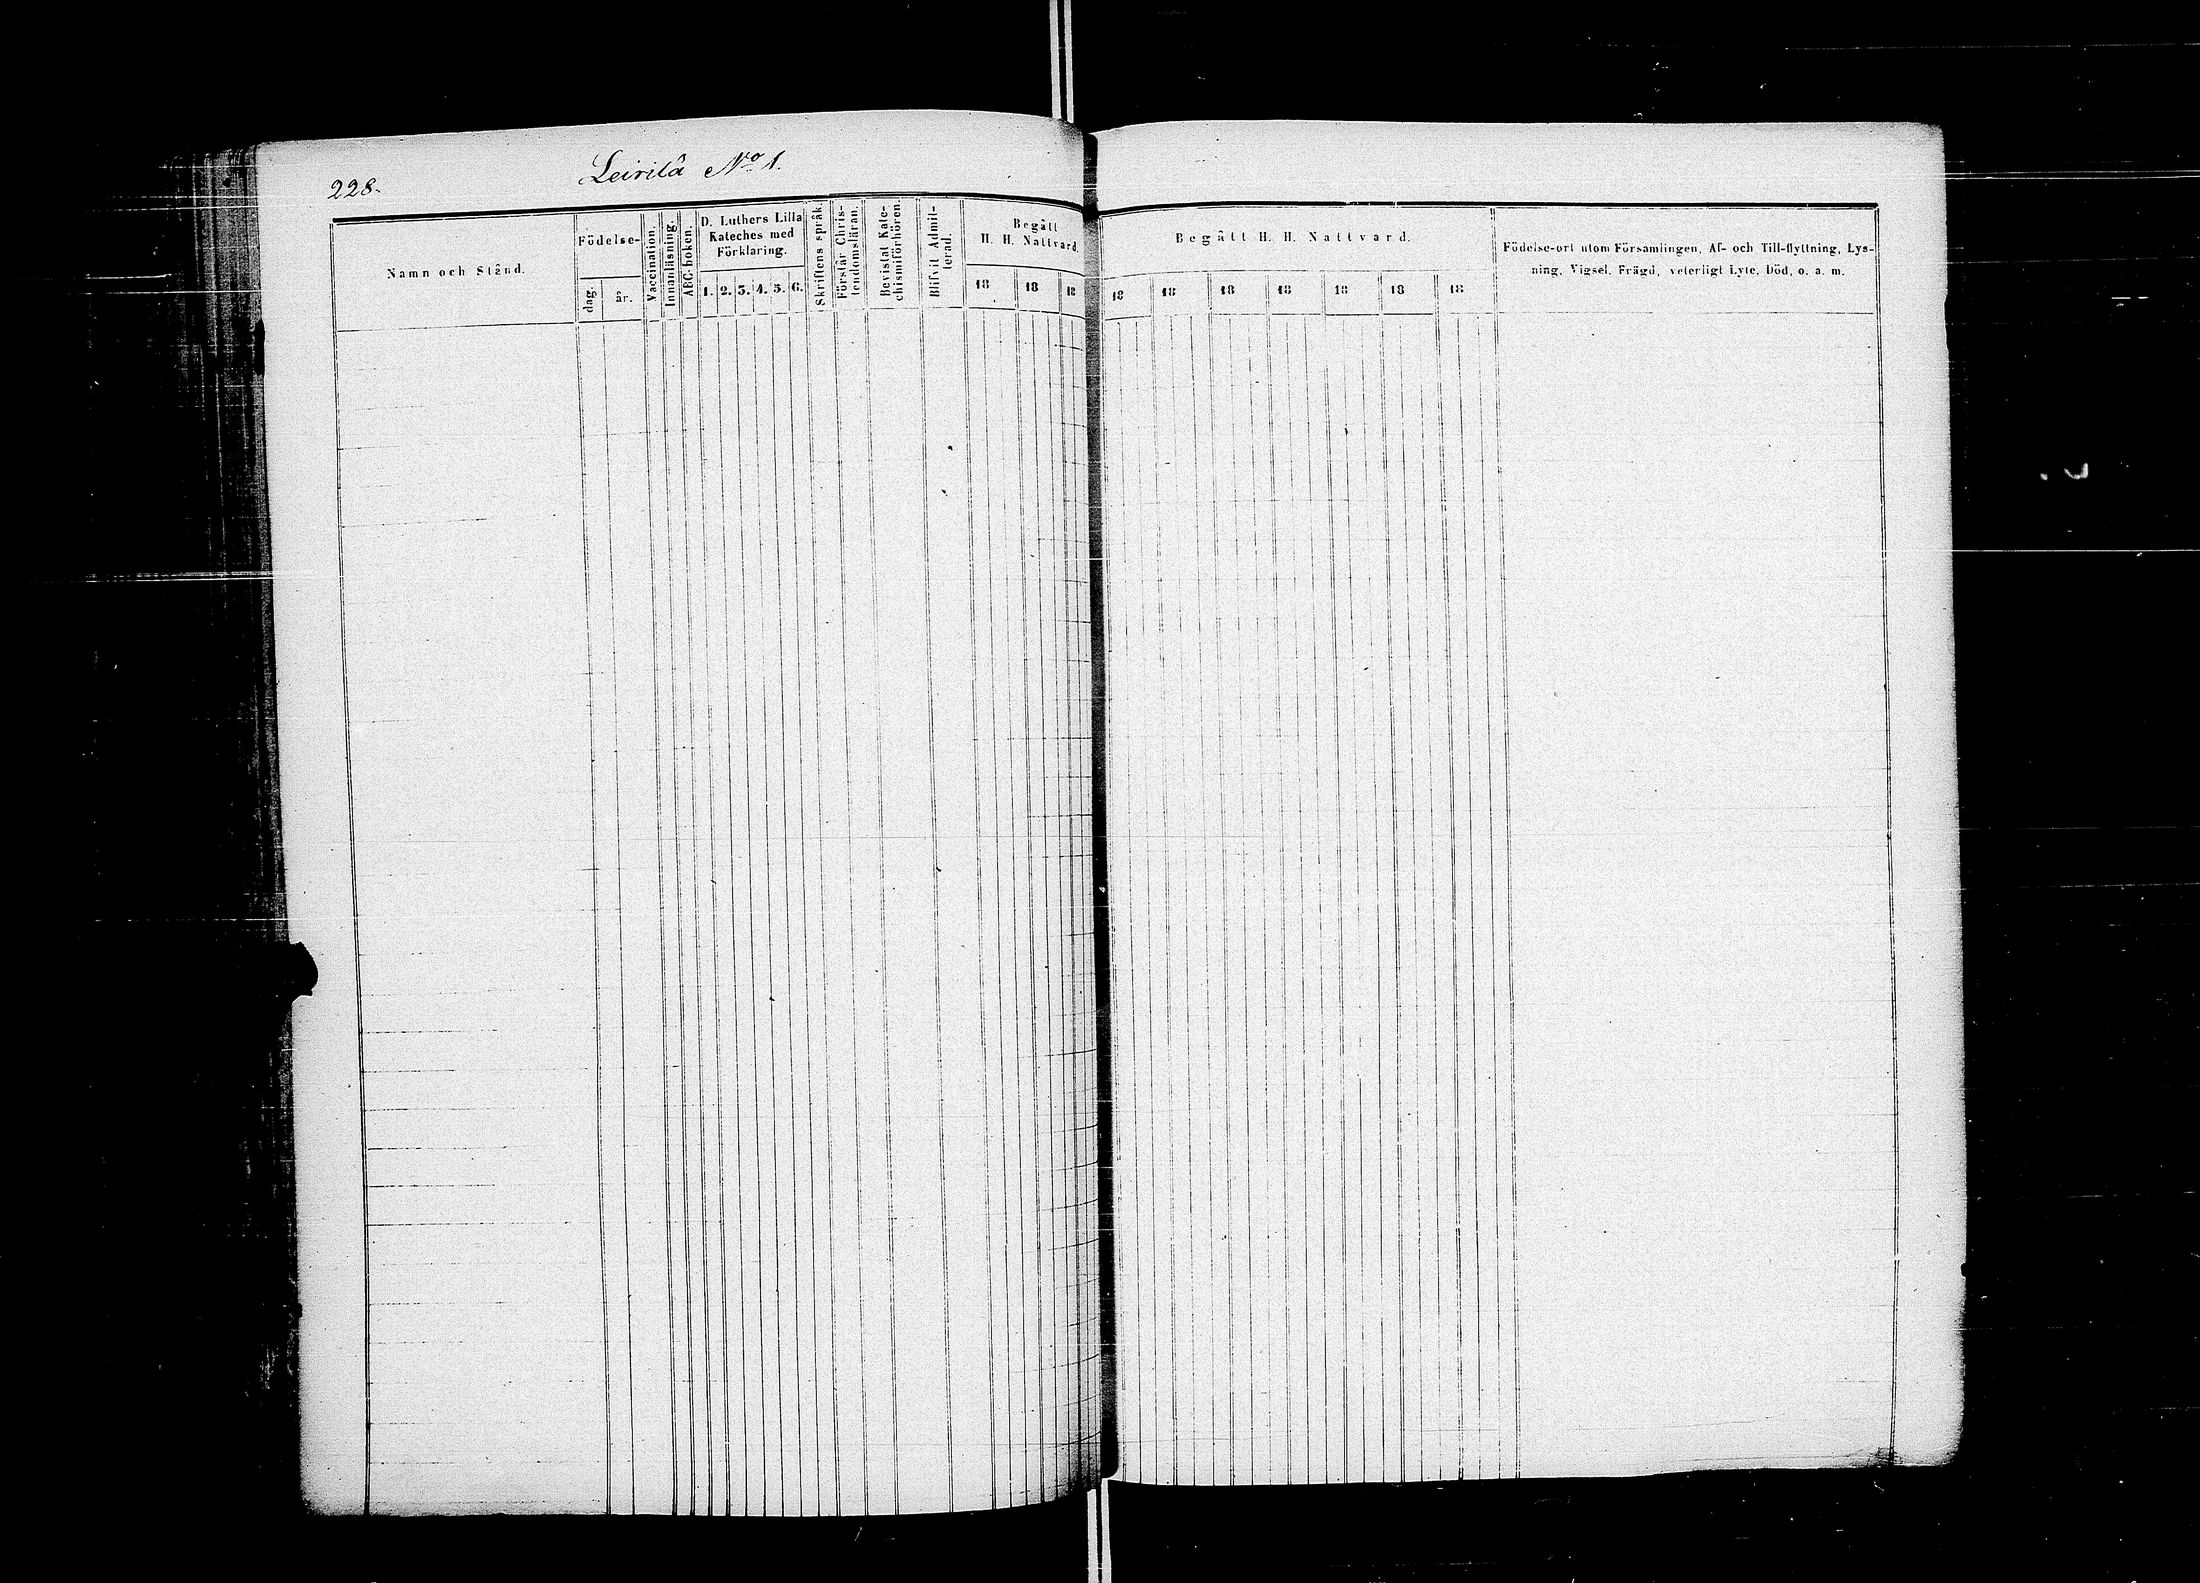 228.
Leirilä No 1.
Namn och Stånd.
Födelse-
dag.
år.
Vaccination.
Innanläsning.
ABC-boken.
D. Luthers Lilla
Kateches med
Förklaring.
1. 2. 3. 4. 5. 6.
Skriftens språk.
Förstår Chris-
tendomsläran.
Bevistat Kate-
chismiförhören.
Blifvit Admit-
terad.
Begått
H. H. Nattvard.
18 18 18
Begått H. H. Nattvard.
18 18 18 18 18 18 18
Födelse-ort utom Församlingen, Af- och Till-flyttning, Lys-
ning, Vigsel, Frägd, veterligt Lyte, Död, o. a. m.